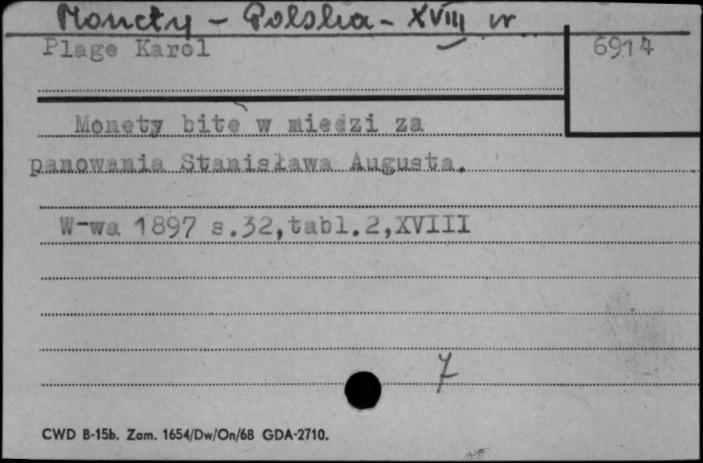 Monety - Polska - XVIII w
Plage Karol
6914
Monety bite w miedzi za
panowania Stanisława Augusta.
W-wa 1897 s.32,tabl.2,XVIII
7
CWD B-15b. Zam. 1654/Dw/On/68 GDA-2710.